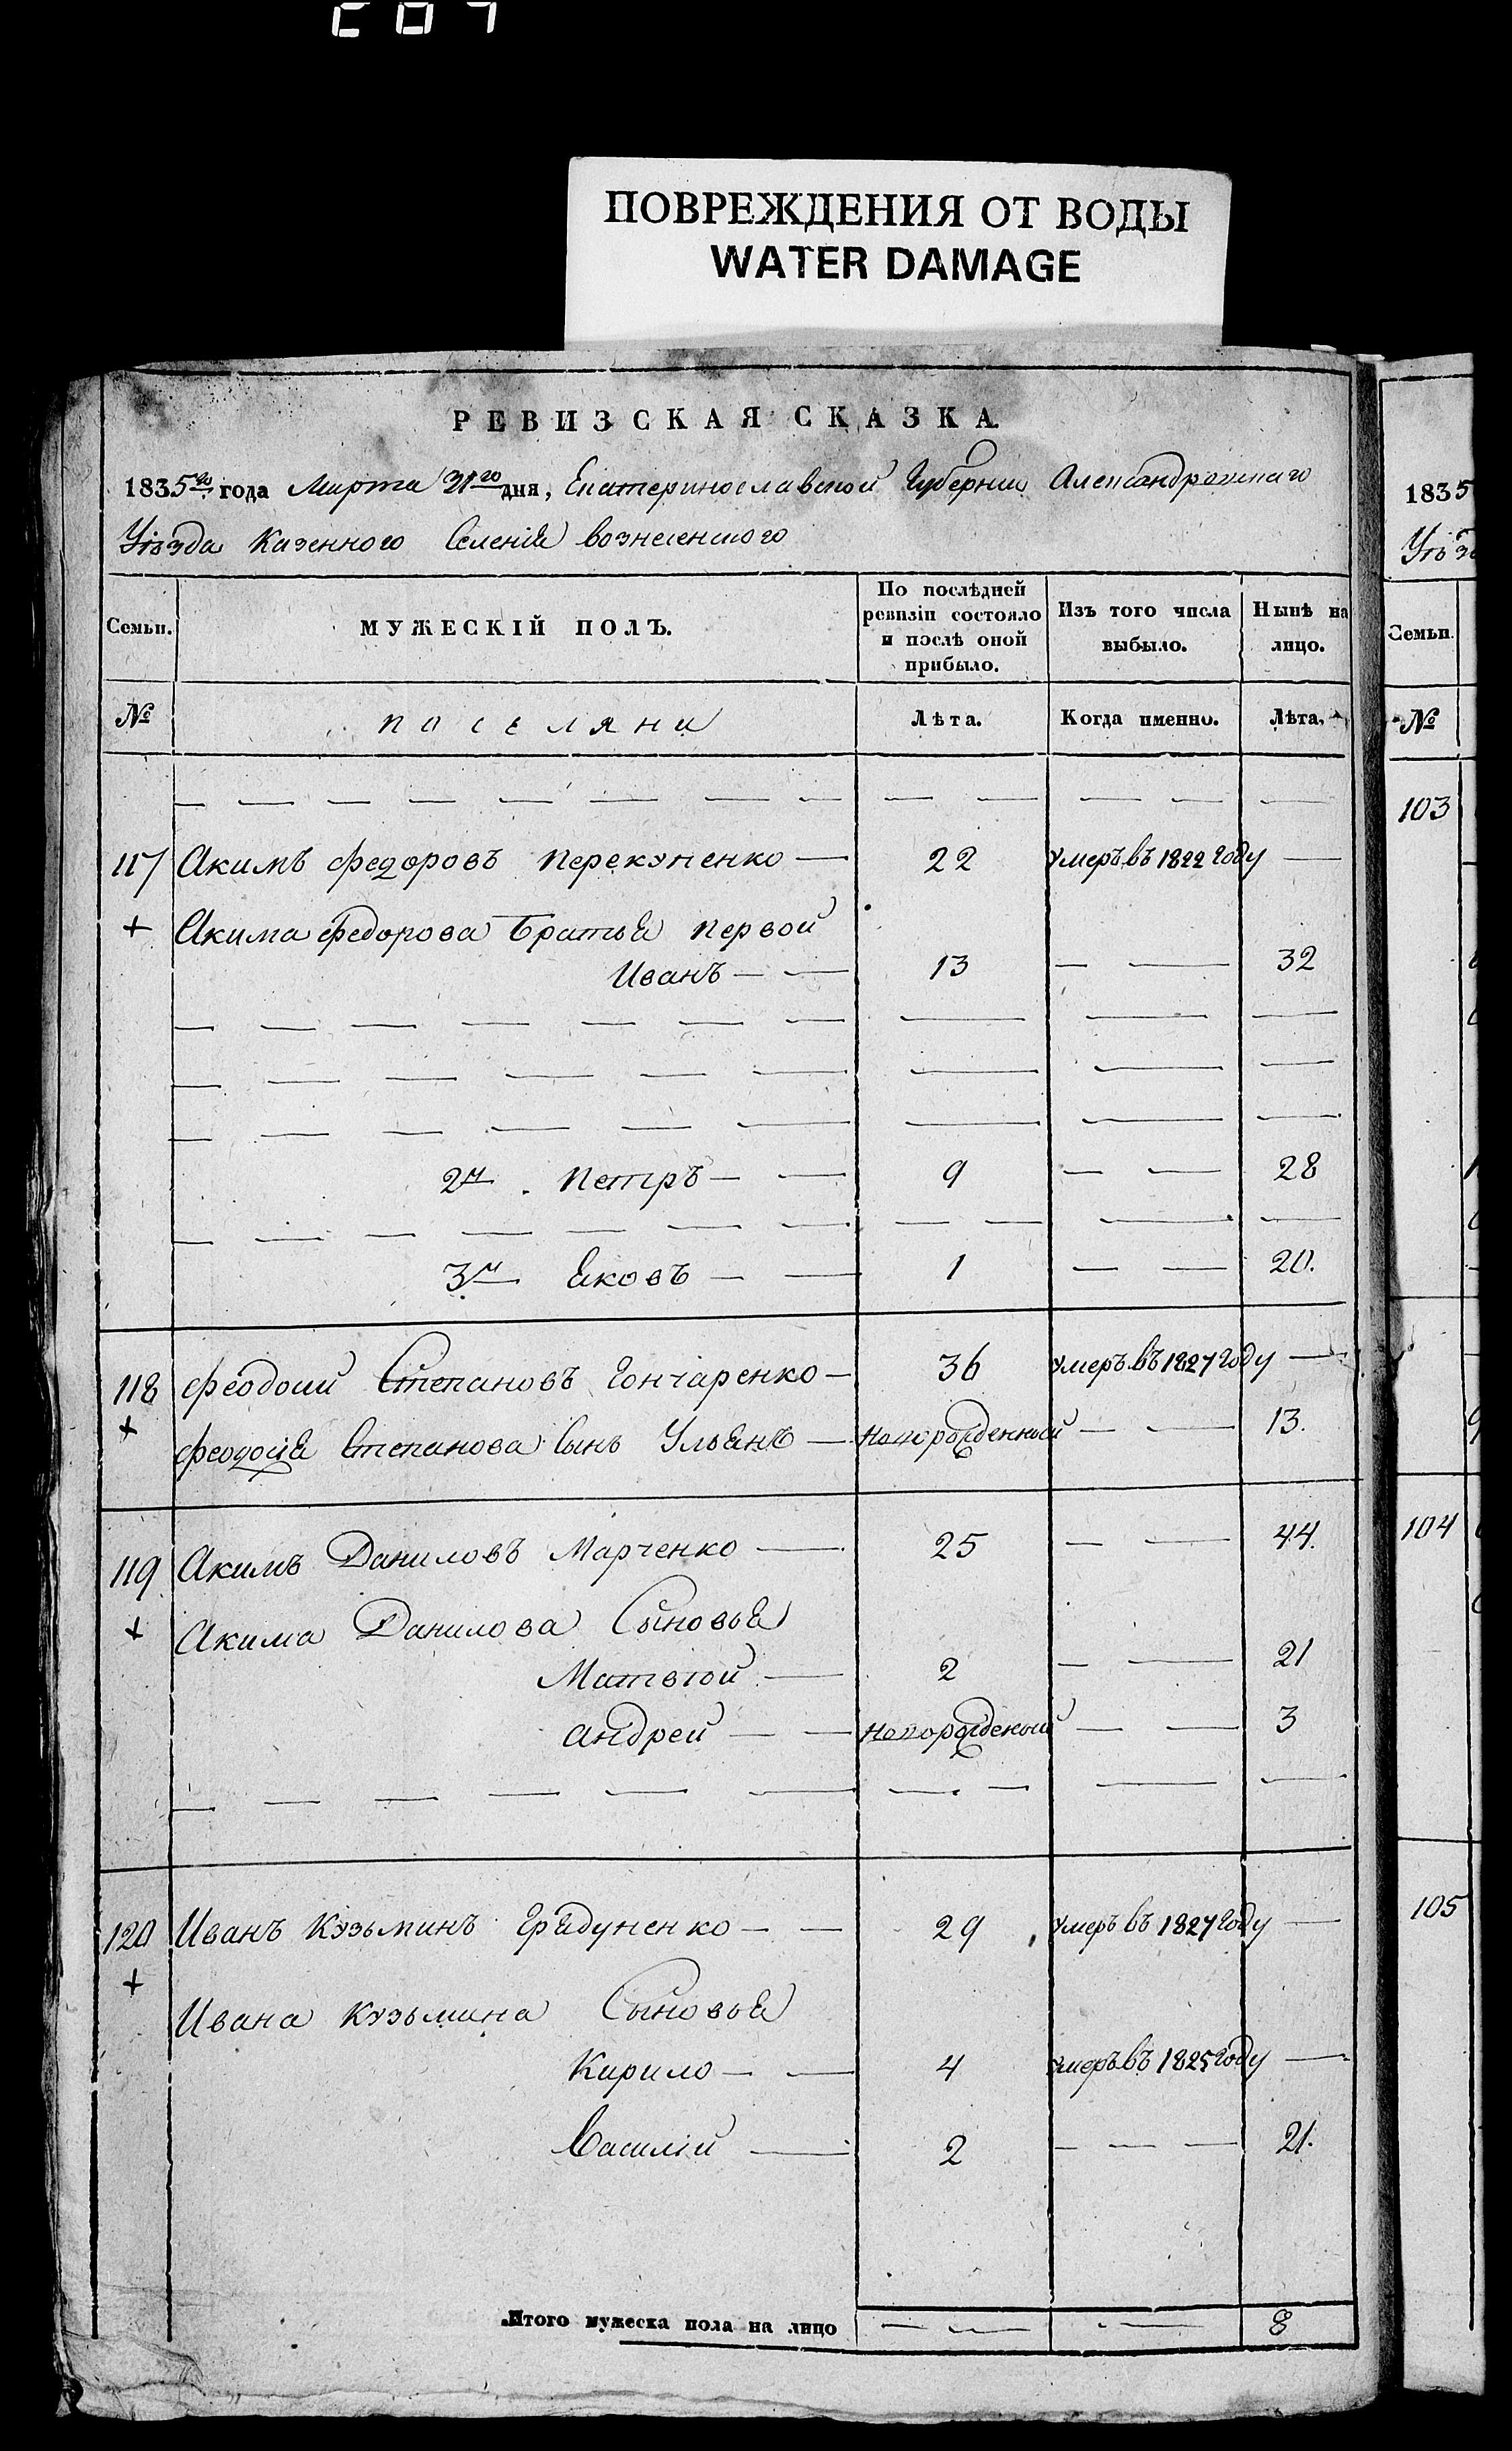 ПОВРЕЖДЕНИЯ ОТ ВОДЫ
WATER DAMAGE
РЕВИЗСКАЯ СКАЗКА.
1835го года Марта 31го дня, Екатеринославской Губернии Александровскаго
Уѣзда Казенного Селенія вознесенского
Семьи. МУЖЕСКІЙ ПОЛЪ. По послѣдней ревизіи состояло и послѣ оной прибыло. Изъ того числа выбыло. Нынѣ на лицо.
№ поселяни Лѣта. Когда именно. Лѣта.
117 Акимъ Федоровъ Перекупенко — 22 умеръ въ 1822 году —
+ Акима Федорова Братья первой
Иванъ — — 13 — — 32
2й. Петръ — — 9 — — 28
3й Яковъ — — 1 — — 20.
118 Феодосий Степановъ Гончаренко — 36 умеръ въ 1827 году —
+ Феодосія Степанова Сынъ Ульянъ — новорожденный — — 13.
119 Акимъ Даниловъ Марченко — 25 — — 44.
+ Акима Данилова Сыновья
Матвѣй — 2 — — 21
Андрей — — новорожденый — — 3
120 Иванъ Кузьминъ — — 29 умеръ въ 1827 году —
+ Ивана Кузьмина Сыновья
Кирило — — 4 умеръ въ 1825 году —
Василій — 2 — — — 21.
Итого мужеска пола на лицо — — — — 8
1835
Уѣз
Семьи.
№
103
104
105